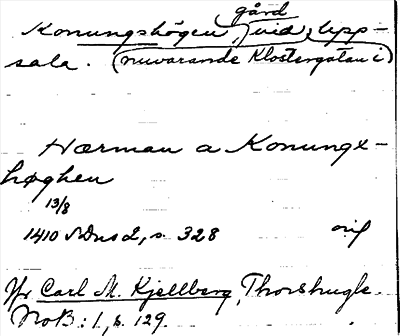 gård
Konungshögen, vid Upp-
sala. (nuvarande Klostergatan i)
Hærman a Konungx-
høghen
13/8
1410 SDns 2, s. 328 orig
Jfr Carl M. Kjellberg, Thorshugle.
NoB: 1, s. 129.